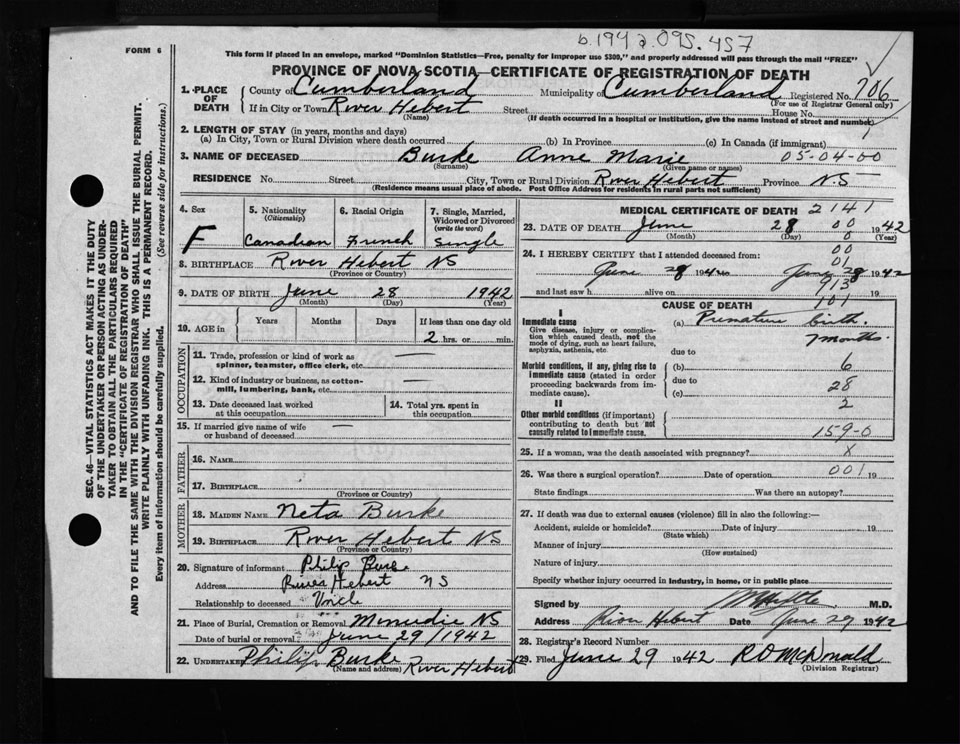 b.1942.095.457
FORM 6
This form if placed in an envelope, marked "Dominion Statistics—Free, penalty for improper use $300," and properly addressed will pass through the mail "FREE"
PROVINCE OF NOVA SCOTIA—CERTIFICATE OF REGISTRATION OF DEATH
SEC. 46—VITAL STATISTICS ACT MAKES IT THE DUTY
OF THE UNDERTAKER OR PERSON ACTING AS UNDER-
TAKER TO OBTAIN ALL THE PARTICULARS REQUIRED
IN THE "CERTIFICATE OF REGISTRATION OF DEATH"
AND TO FILE THE SAME WITH THE DIVISION REGISTRAR WHO SHALL ISSUE THE BURIAL PERMIT.
WRITE PLAINLY WITH UNFADING INK. THIS IS A PERMANENT RECORD.
Every item of information should be carefully supplied. (See reverse side for instructions.)
1. PLACE OF DEATH County of Cumberland Municipality of Cumberland Registered No. 706
(For use of Registrar General only)
If in City or Town River Hebert Street House No.
(Name) (If death occurred in a hospital or institution, give the name instead of street and number)
2. LENGTH OF STAY (in years, months and days)
(a) In City, Town or Rural Division where death occurred (b) In Province (c) In Canada (if immigrant)
3. NAME OF DECEASED Burke Anne Marie 05-04-00
(Surname) (Given name or names)
RESIDENCE No. Street City, Town or Rural Division River Hebert Province N.S
(Residence means usual place of abode. Post Office Address for residents in rural parts not sufficient)
4. Sex F
5. Nationality (Citizenship) Canadian
6. Racial Origin French
7. Single, Married, Widowed or Divorced (write the word) Single
8. BIRTHPLACE River Hebert NS
(Province or Country)
9. DATE OF BIRTH June 28 1942
(Month) (Day) (Year)
10. AGE in Years Months Days If less than one day old
2 hrs. or min.
OCCUPATION
11. Trade, profession or kind of work as spinner, teamster, office clerk, etc. —
12. Kind of industry or business, as cotton-mill, lumbering, bank, etc. —
13. Date deceased last worked at this occupation
14. Total yrs. spent in this occupation
15. If married give name of wife or husband of deceased —
FATHER
16. NAME
17. BIRTHPLACE
(Province or Country)
MOTHER
18. MAIDEN NAME Neta Burke
19. BIRTHPLACE River Hebert NS
(Province or Country)
20. Signature of informant Philip Burke
Address River Hebert NS
Relationship to deceased Uncle
21. Place of Burial, Cremation or Removal Minudie NS
Date of burial or removal June 29/1942
22. UNDERTAKER Philip Burke River Hebert
(Name and address)
MEDICAL CERTIFICATE OF DEATH 2141
23. DATE OF DEATH June 28 00 1942
(Month) (Day) 0 (Year)
24. I HEREBY CERTIFY that I attended deceased from: 00
01
June 28 1942 to June 28 1942
and last saw h alive on 913 19
101
CAUSE OF DEATH
I
Immediate cause
Give disease, injury or complication which caused death, not the mode of dying, such as heart failure, asphyxia, asthenia, etc.
(a) Premature birth.
7 months.
due to
Morbid conditions, if any, giving rise to immediate cause (stated in order proceeding backwards from immediate cause).
(b) 6
due to 28
(c) 2
II
Other morbid conditions (if important) contributing to death but not causally related to immediate cause. 159-0
25. If a woman, was the death associated with pregnancy? X
26. Was there a surgical operation? Date of operation 001 19
State findings Was there an autopsy?
27. If death was due to external causes (violence) fill in also the following:—
Accident, suicide or homicide? Date of injury 19
(State which)
Manner of injury
(How sustained)
Nature of injury
Specify whether injury occurred in industry, in home, or in public place
Signed by M.D.
Address River Hebert Date June 29 1942
28. Registrar's Record Number
29. Filed June 29 1942 R D McDonald
(Division Registrar)